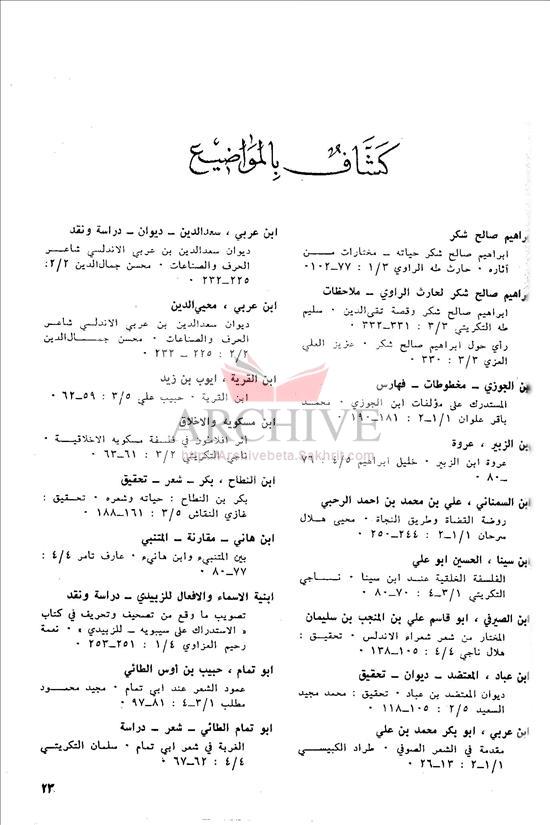 كشاف بالمواضيع
براهيم صالح شكر
ابراهيم صالح شكر حياته ــ مختارات من
آثاره ٠ حارث طه الراوي ١/٣ : ٧٧ــ١٠٢ ٠
براهيم صالح شكر لحارث الراوي ــ ملاحظات
ابراهيم صالح شكر وقصة تقي‌الدين ٠ سليم
طه التكريتي ٣/٣ : ٣٣١ــ٣٣٢ ٠
رأي حول ابراهيم صالح شكر ٠ عزيز العلي
العزي ٣/٣ : ٣٣٠ ٠
بن الجوزي ــ مخطوطات ــ فهارس
المستدرك على مؤلفات ابن الجوزي ٠ محمد
باقر علوان ١/١ــ٢ : ١٨١ــ١٩٠ ٠
بن الزبير ، عروة
عروة ابن الزبير ٠ خليل ابراهيم ٤/٥ : ٧٩
ــ٨٠ ٠
ابن السمناني ، علي بن محمد بن احمد الرحبي
روضة القضاة وطريق النجاة ٠ محيى هلال
سرحان ١/١ــ٢ : ٢٤٤ــ٢٥٠ ٠
بن سينا ، الحسين ابو علي
الفلسفة الخلقية عند ابن سينا ٠ ناجي
التكريتي ٣/١ــ٤ : ٧٠ــ٨٠ ٠
ابن الصيرفي ، ابو قاسم علي بن المنجب بن سليمان
المختار من شعر شعراء الاندلس ٠ تحقيق :
هلال ناجي ٤/٤ : ١٠٥ــ١٣٨ ٠
ابن عباد ، المعتضد ــ ديوان ــ تحقيق
ديوان المعتضد بن عباد ٠ تحقيق : محمد مجيد
السعيد ٢/٥ : ١٠٥ــ١١٨ ٠
ابن عربي ، ابو بكر محمد بن علي
مقدمة في الشعر الصوفي ٠ طراد الكبيسي
١/١ــ٢ : ١٣ــ٢٦ ٠
ابن عربي ، سعدالدين ــ ديوان ــ دراسة ونقد
ديوان سعدالدين بن عربي الاندلسي شاعر
الحرف والصناعات ٠ محسن جمال‌الدين ٢/٢:
٢٢٥ــ٢٣٢ ٠
ابن عربي ، محيي‌الدين
ديوان سعدالدين بن عربي الاندلسي شاعر
الحرف والصناعات ٠ محسن جمال‌الدين
٢/٢ : ٢٢٥ ــ ٢٣٢ ٠
ابن القرية ، ايوب بن زيد
ابن القرية ٠ حبيب علي ٣/٥ : ٥٩ــ٦٢ ٠
ابن مسكويه والاخلاق
أثر افلاطون في فلسفة مسكويه الاخلاقية ٠
ناجي التكريتي ٣/٢ : ٦١ــ٦٣ ٠
ابن النطاح ، بكر ــ شعر ــ تحقيق
بكر بن النطاح : حياته وشعره ٠ تحقيق :
غازي النقاش ٣/٥ : ١٦١ــ١٨٨ ٠
ابن هاني ــ مقارنة ــ المتنبي
بين المتنبي وابن هانيء ٠ عارف تامر ٤/٤ :
٧٧ــ٨٠ ٠
ابنية الاسماء والافعال للزبيدي ــ دراسة ونقد
تصويب ما وقع من تصحيف وتحريف في كتاب
« الاستدراك على سيبويه » للزبيدي ٠ نعمة
رحيم العزاوي ١/٤ : ٢٥١ــ٢٥٣ ٠
ابو تمام ، حبيب بن أوس الطائي
عمود الشعر عند ابي تمام ٠ مجيد محمود
مطلب ٣/١ــ٤ : ٨١ــ٩٧ ٠
ابو تمام الطائي ــ شعر ــ دراسة
الغربة في شعر ابي تمام ٠ سلمان التكريتي
٤/٤ : ٦٢ــ٦٧ ٠
٢٣
ARCHIVE
http://Archivebeta.Sakhrit.com